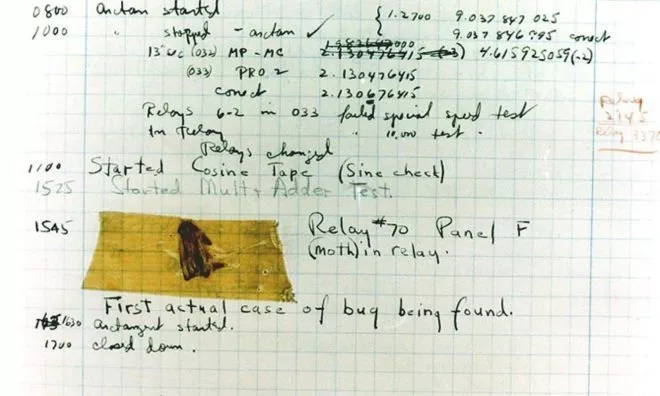 0800 arctan started
1000 " stopped - arctan ✓ { 1.2700 9.037 847 025
9.037 846 995 conect
13"uc (032) MP - MC 2.130476415 (-3) 4.615925059(-2)
(033) PRO 2 2.130476415
conect 2.130676415
Relays 6-2 in 033 failed special speed test
In Relay " 10,000 test.
Relays changed
Relay
2145
Relay 3370
1100 Started Cosine Tape (Sine check)
1525 Started Mult + Adder Test.
1545 Relay #70 Panel F
(moth) in relay.
First actual case of bug being found.
1630 arctangent started.
1700 closed down.